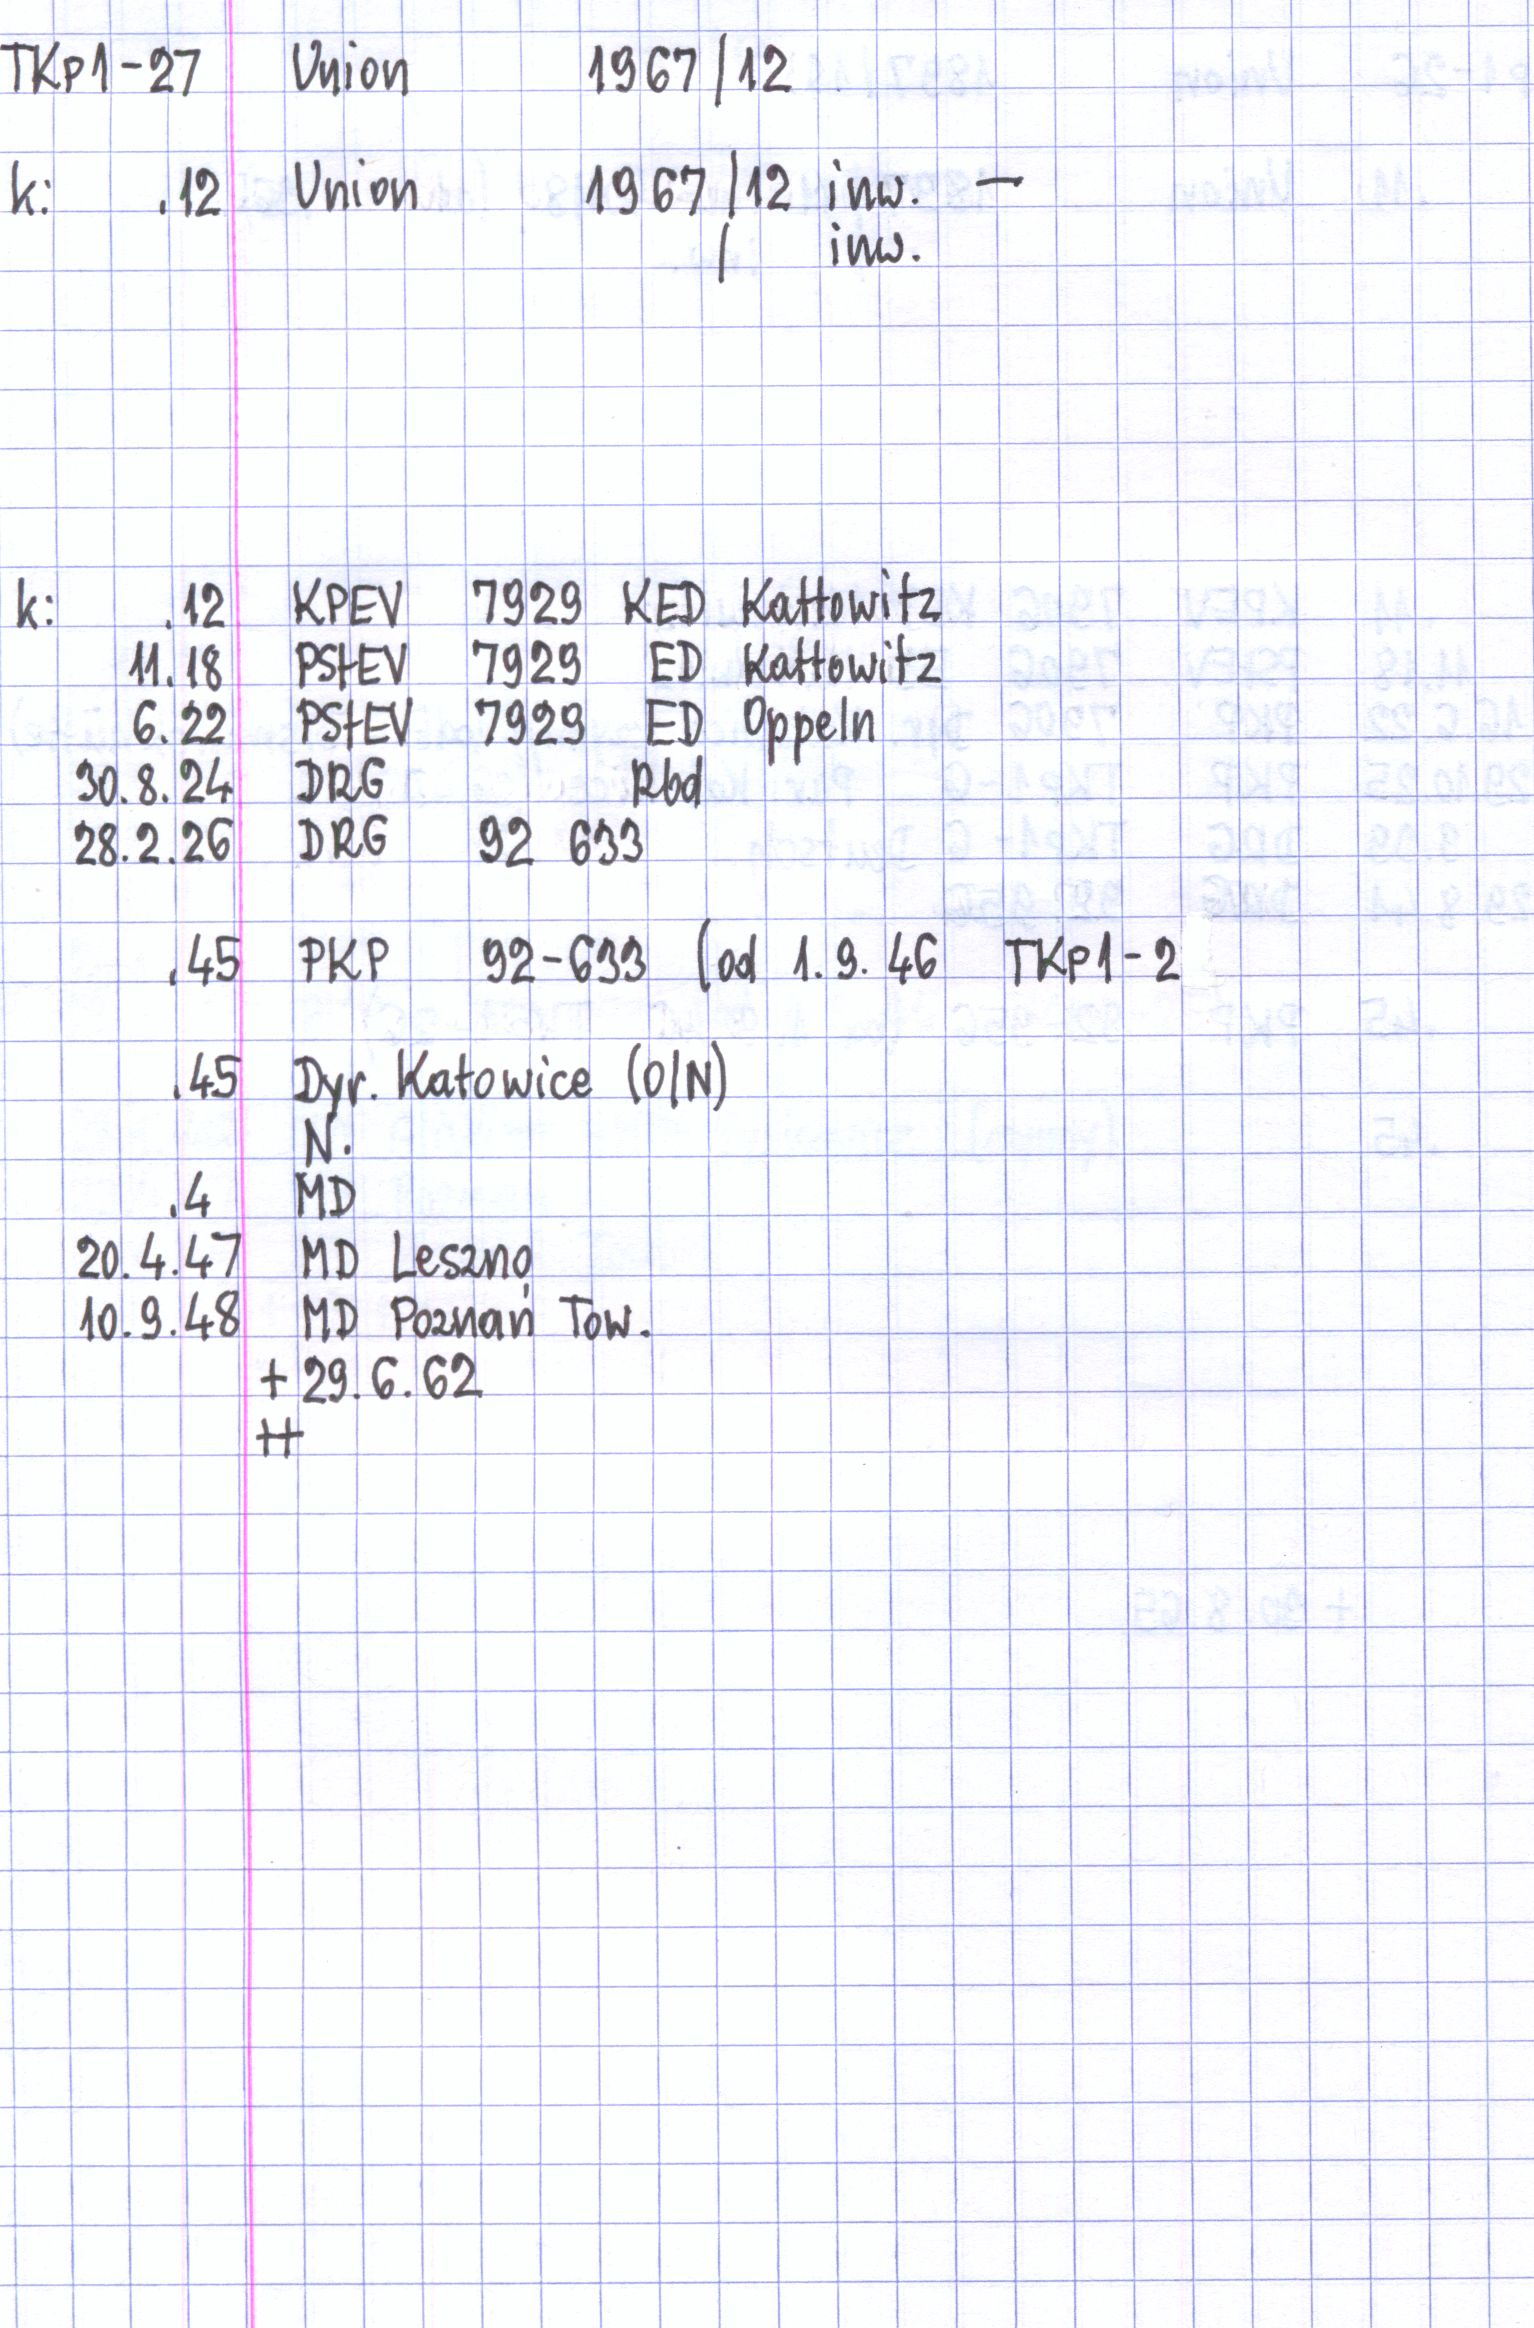 TKp1-27 Union 1967/12
k: .12 Union 1967/12 inw. —
/ inw.
k: .12 KPEV 7929 KED Kattowitz
11.18 PStEV 7929 ED Kattowitz
6.22 PStEV 7929 ED Oppeln
30.8.24 DRG Rbd
28.2.26 DRG 92 633
.45 PKP 92-633 (od 1.9.46 TKp1-2
.45 Dyr. Katowice (O/N)
N.
.4 MD
20.4.47 MD Leszno
10.9.48 MD Poznań Tow.
+ 29.6.62
++